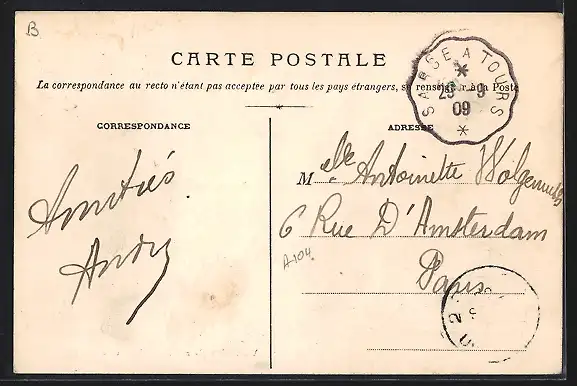 B
CARTE POSTALE
La correspondance au recto n'étant pas acceptée par tous les pays étrangers, se renseigner à la Poste
CORRESPONDANCE
ADRESSE
SARGÉ A TOURS
25 9
09
Amitiés
André
Melle Antoinette
6 Rue D'Amsterdam
Paris
A104